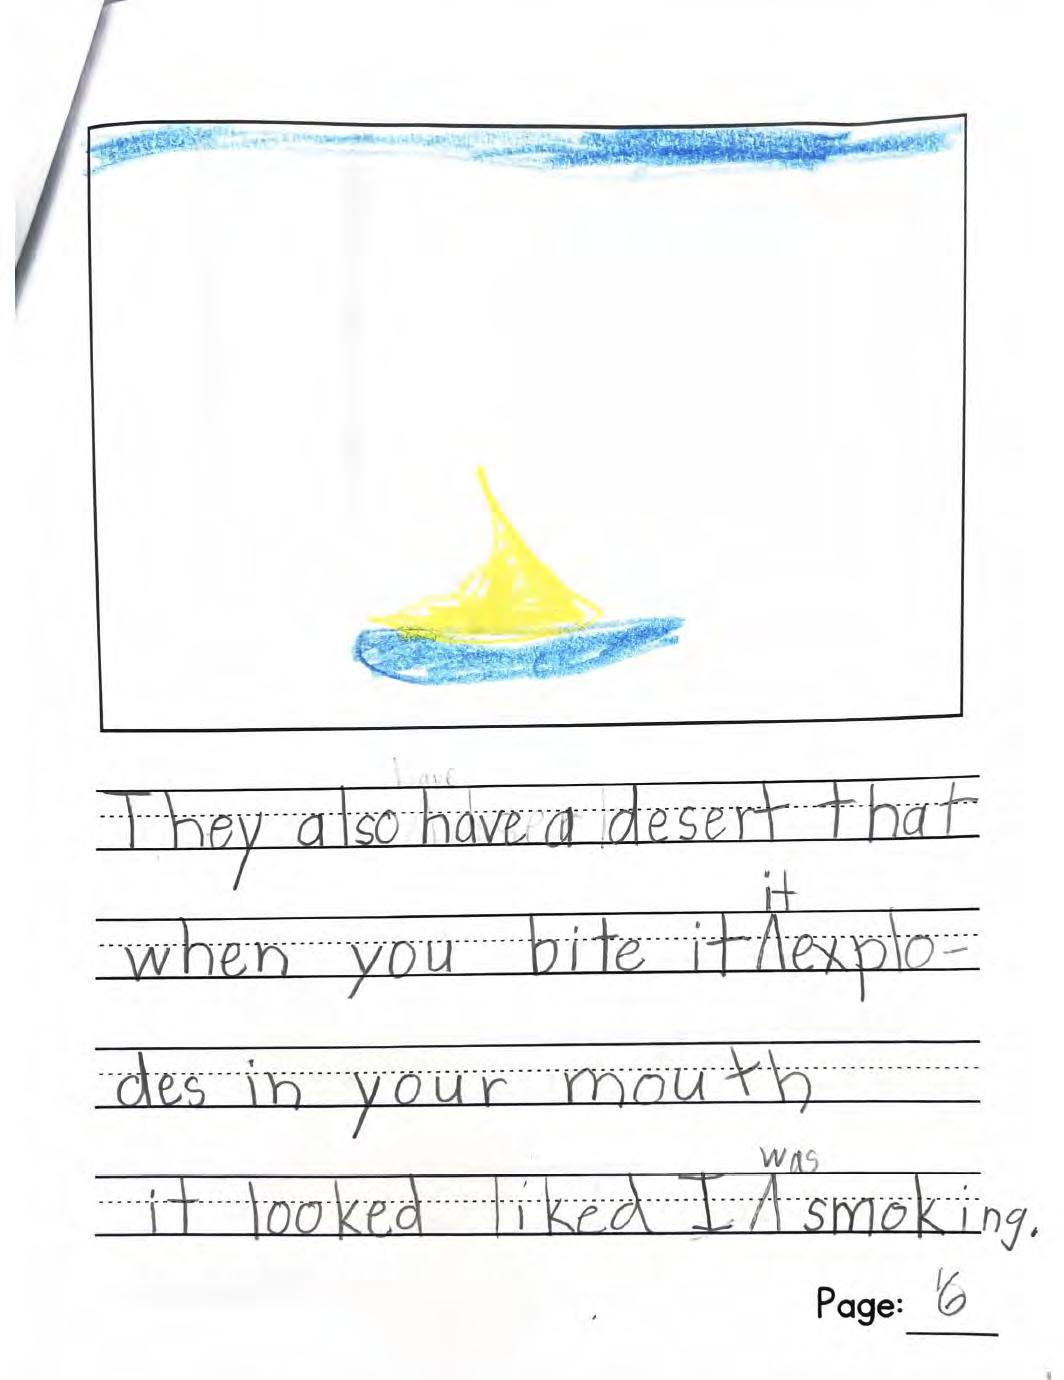 They also have a desert that
when you bite it it explo-
des in your mouth
it looked liked I was smoking.
Page: 6